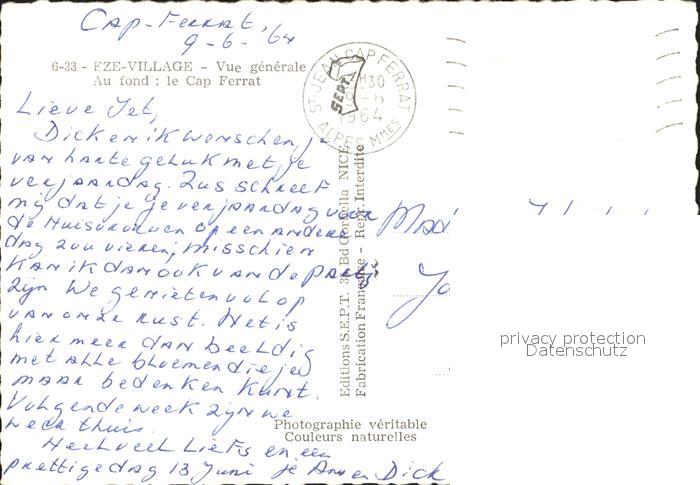 Cap-Ferrat,
9-6-'64
6-33 - EZE-VILLAGE - Vue générale
Au fond : le Cap Ferrat
ST-JEAN CAP FERRAT
H30
1964
ALPES Mmes
SEPT
Lieve Jet,
Dick en ik wenschen je
van harte geluk met je
verjaardag. Zus schreef
mij dat je je verjaardag voor
de Huisvrouwen op een andere
dag zou vieren, misschien
kan ik dan ook van de party
zijn. We genieten volop
van onze rust. Het is
hier meer dan beeldig
met alle bloemen die je
maar bedenken kunt.
Volgende week zijn we
weer thuis.
Heel veel liefs en een
prettige dag 13 Juni je Ann en Dick
Editions S.E.P.T. Bd NICE
Fabrication Française - Repr. Interdite
Photographie véritable
Couleurs naturelles
privacy protection
Datenschutz